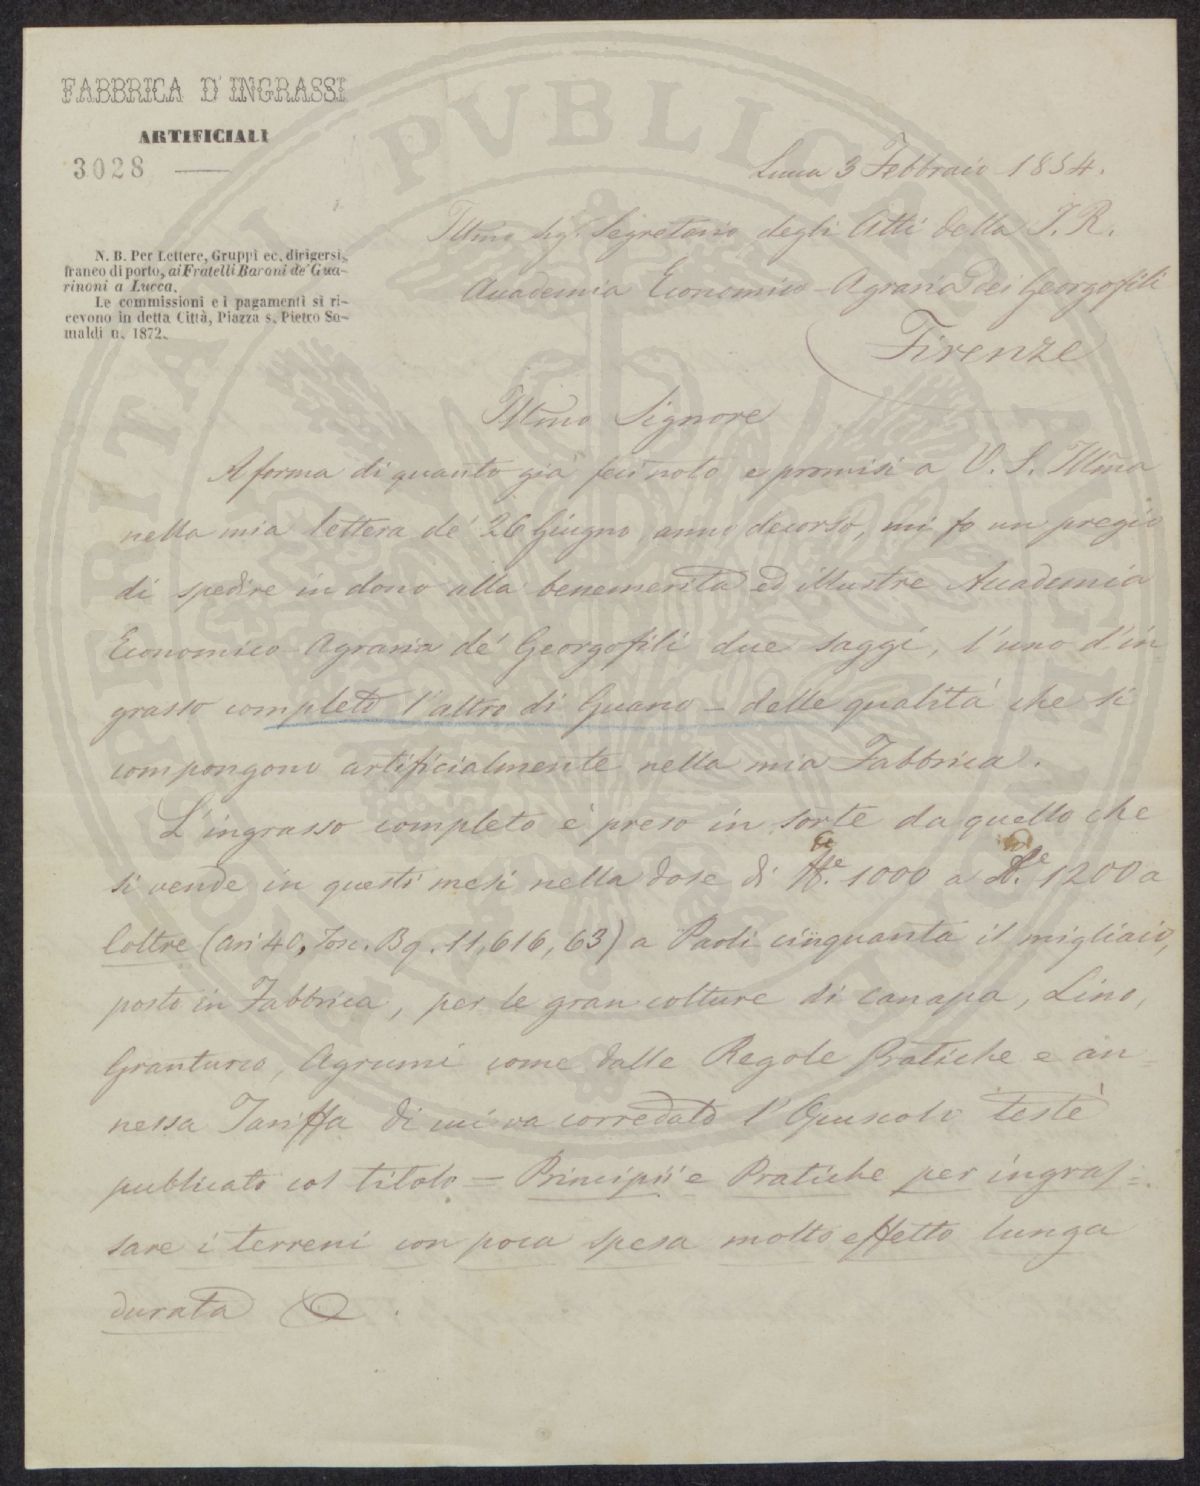 FABBRICA D'INGRASSI
ARTIFICIALI
3028
N. B. Per Lettere, Gruppi ec. dirigersi,
franco di porto, ai Fratelli Baroni de' Gua-
rinoni a Lucca.
Le commissioni e i pagamenti si ri-
cevono in detta Città, Piazza s. Pietro So-
maldi n. 1872.
Lucca 3 Febbraio 1854.
Illmo Sigr. Segretario degli Atti della I. R.
Accademia Economico-Agraria dei Georgofili
Firenze
Illmo Signore
A forma di quanto già feci noto e promisi a V. S. Illma
nella mia lettera de' 26 Giugno anno decorso, mi fo un pregio
di spedire in dono alla benemerita ed illustre Accademia
Economico-Agraria de' Georgofili due saggi, l'uno d'in
grasso completo l'altro di Guano - delle qualità che si
compongono artificialmente nella mia Fabbrica.
L'ingrasso completo è preso in sorte da quello che
si vende in questi mesi nella dose di 1000 a 1200 a
Coltre (ari 40, Tosc. Bq. 11,616,63) a Paoli cinquanta il migliaio,
posto in Fabbrica, per le gran colture di Canapa, Lino,
Granturco, Agrumi come dalle Regole Pratiche e an=
nessa Tariffa di cui va corredato l'Opuscolo testè
publicato col titolo = Principii e Pratiche per ingras=
sare i terreni con poca spesa molto effetto lunga
durata